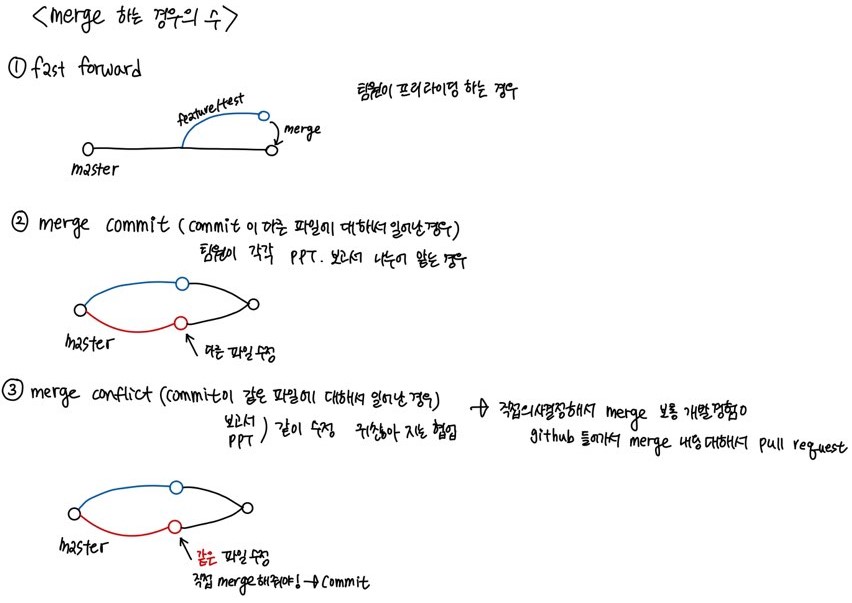 <merge 하는 경우의 수>
① fast forward
팀원이 프리라이딩 하는 경우
feature/test
merge
master
② merge commit (commit 이 다른 파일에 대해서 일어난 경우)
팀원이 각각 PPT. 보고서 나누어 맡는 경우
master
다른 파일 수정
③ merge conflict (commit이 같은 파일에 대해서 일어난 경우) → 직접의사결정해서 merge 보통 개발경험이
보고서
PPT ) 같이 수정 귀찮아 지는 협업
github 들어가서 merge 내용대해서 pull request
master
같은 파일 수정
직접 merge 해줘야! → Commit